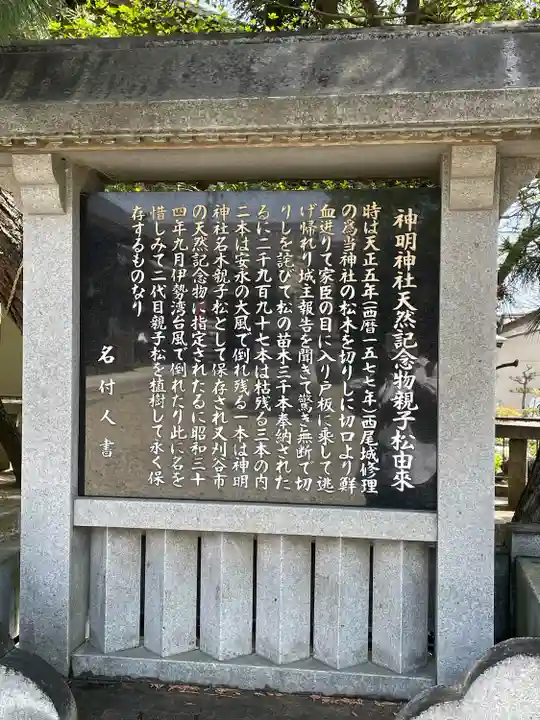 神明神社天然記念物親子松由来
時は天正五年(西暦一五七七年)西尾城修理
の為当神社の松木を切りしに切口より鮮
血迸りて家臣の目に入り戸板に乗して逃
げ帰れり城主報告を聞きて驚き無断で切
りしを詫びて松の苗木三千本奉納された
るに二千九百九十七本は枯残る三本の内
二本は安永の大風で倒れ残る一本は神明
神社名木親子松として保存され又刈谷市
の天然記念物に指定されたるに昭和三十
四年九月伊勢湾台風で倒れたり此に名を
惜しみて二代目親子松を植樹して永く保
存するものなり
名付人書